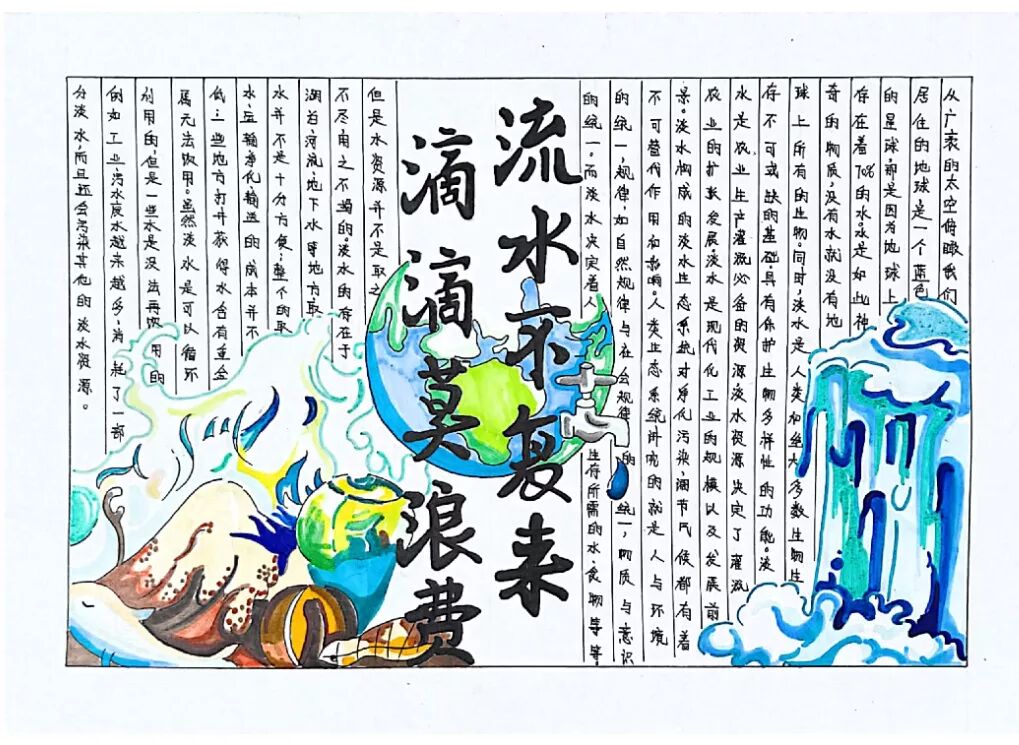 从广袤的太空俯瞰我们
居住的地球是一个蓝色
的星球那是因为地球上
存在着70%的水。水是如此神
奇的物质，没有水就没有地
球上所有的生物。同时，淡水是人类和绝大多数生物生
存不可或缺的基础，具有保护生物多样性的功能。淡
水是农业生产灌溉必备的资源，淡水资源决定了灌溉
农业的扩张发展，淡水是现代化工业的规模以及发展前
景。淡水构成的淡水生态系统对净化污染，调节气候都有着
不可替代作用和影响。人类生态系统讲究的就是人与环境
的统一，规律，如自然规律与社会规律的统一，物质与意识
的统一，而淡水决定着人生存所需的水，食物等等。
流水不复来
滴滴莫浪费
但是水资源并不是取之
不尽用之不竭的。淡水的存在于
湖泊，河流，地下水等地方取
水并不是十分方便；整个的取
水，运输净化输送的成本并不
低；一些地方打井获得水含有重金
属无法饮用。虽然淡水是可以循环
利用的，但是一些水是没法再饮用的
例如工业，污水废水越来越多，消耗了一部
分淡水，而且还会污染其他的淡水资源。